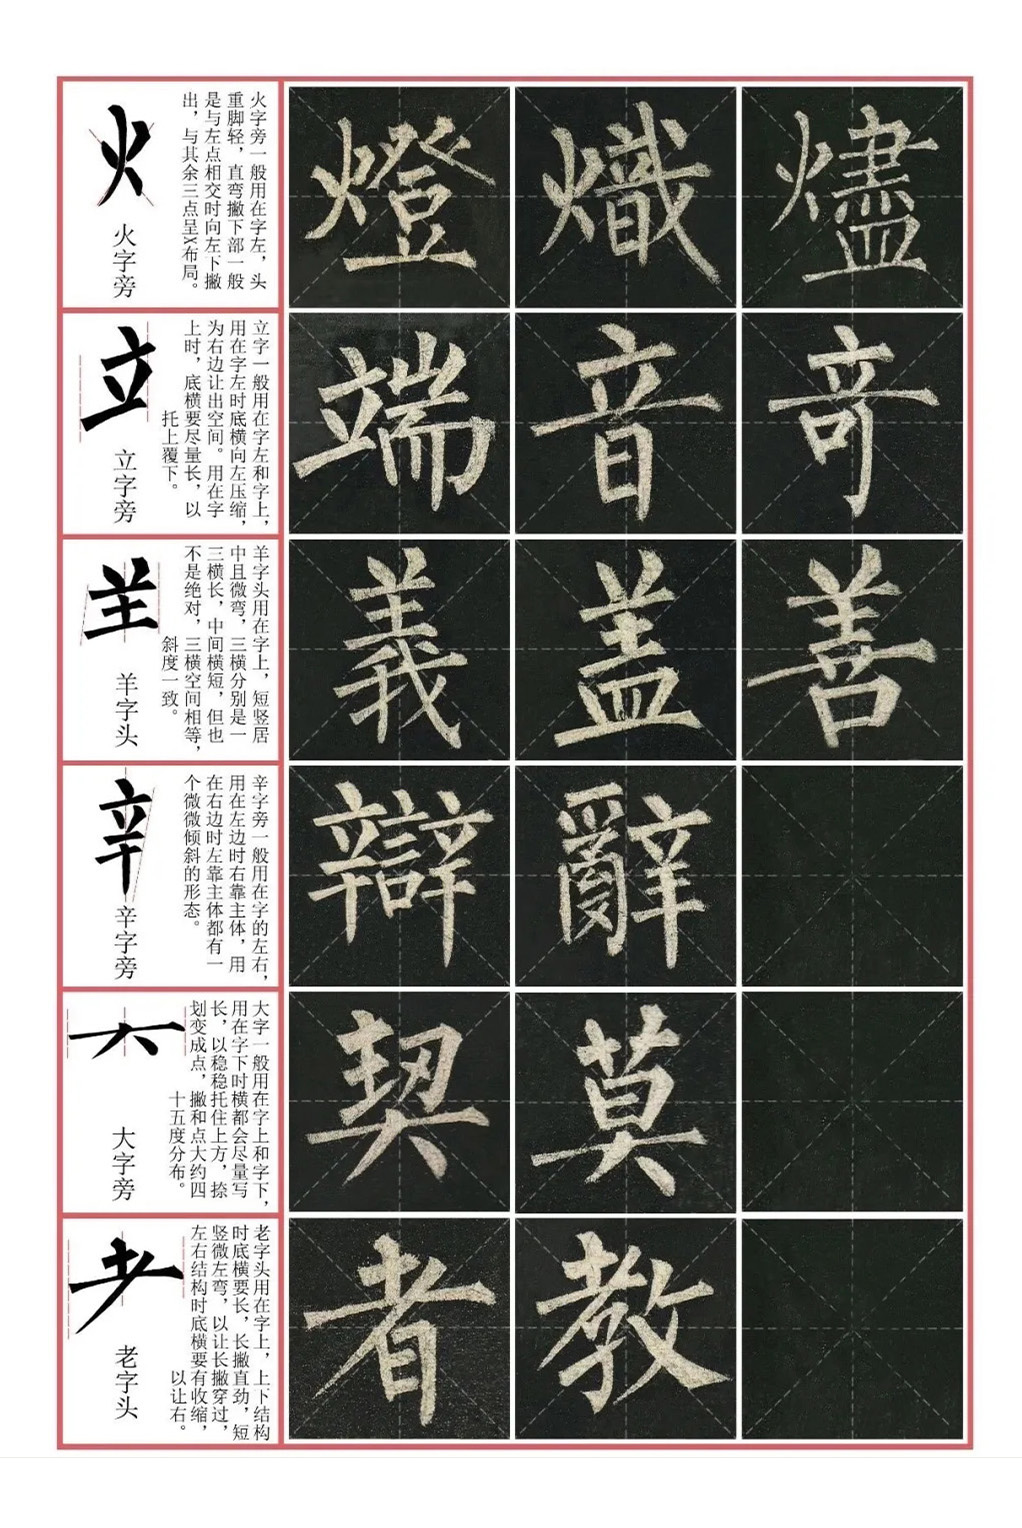 火
火字旁
火字旁一般用在字左，头
重脚轻，直弯撇下部一般
是与左点相交时向左下撇
出，与其余三点呈X布局。
燈 熾 燼
立
立字旁
立字一般用在字左和字上，
用在字左时底横向左压缩，
为右边让出空间。用在字
上时，底横要尽量长，以
托上覆下。
端 音 竒
羊字头
羊字头用在字上，短竖居
中且微弯，三横分别是一
三横长，中间横短，但也
不是绝对，三横空间相等，
斜度一致。
義 盖 善
辛
辛字旁
辛字旁一般用在字的左右，
用在左边时右靠主体，用
在右边时左靠主体都有一
个微微倾斜的形态。
辯 辭
大字旁
大字一般用在字上和字下，
用在字下时横都会尽量写
长，以稳稳托住上方，捺
划变成点，撇和点大约四
十五度分布。
契 莫
耂
老字头
老字头用在字上，上下结构
时底横要长，长撇直劲，短
竖微左弯，以让长撇穿过，
左右结构时底横要有收缩，
以让右。
者 教